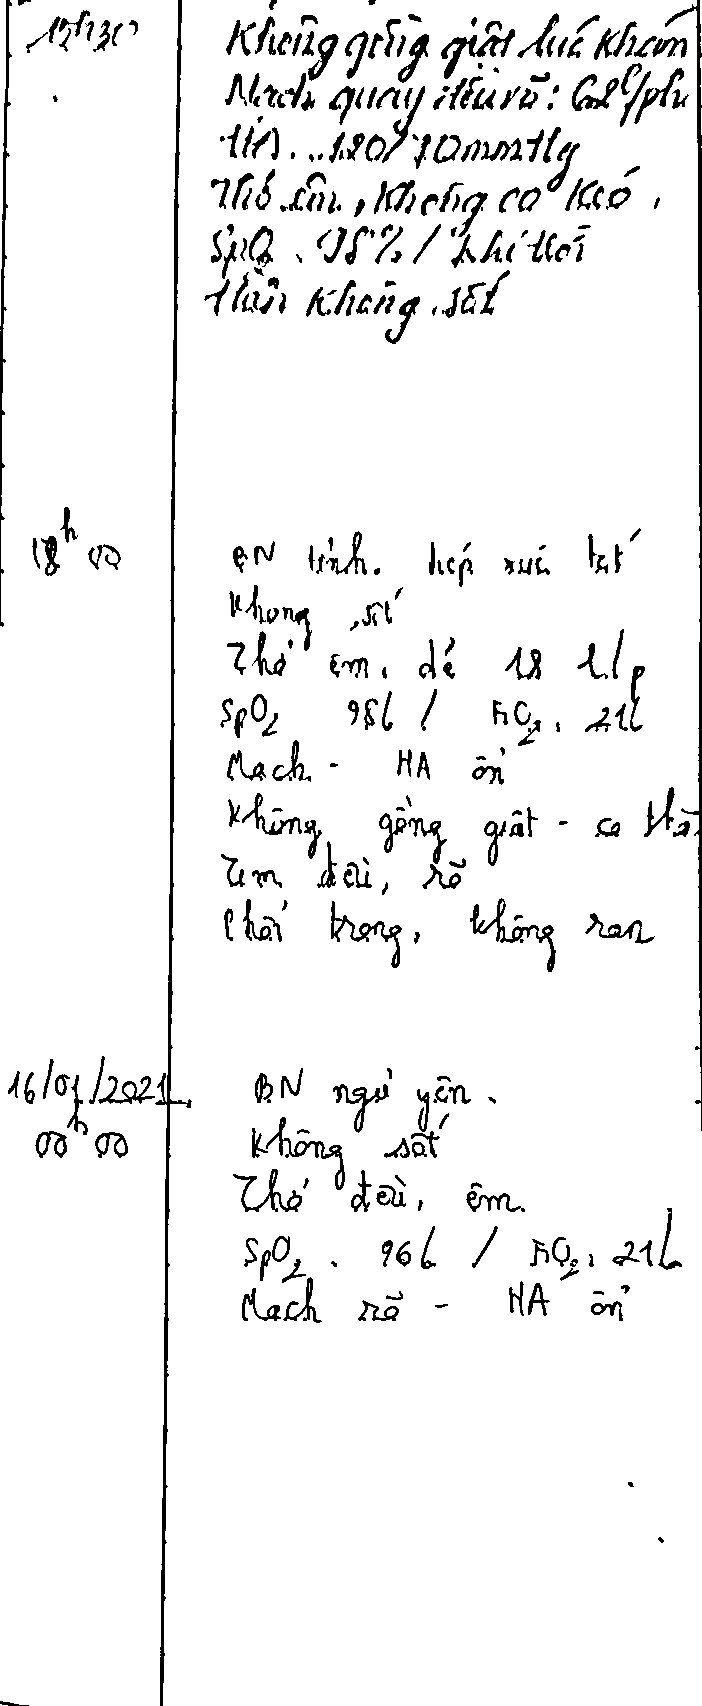 Không gồng giật lúc khám
Mạch quay đều rõ: 62 l/ph
HA. 120/70mmHg
Thở êm, không co kéo.
SpO2. 98% / khí trời
Thân không sốt
18h00
BN tỉnh. tiếp xúc tốt
Không sốt
Thở êm, dễ 18 l/p
SpO2 98% / FiO2. 21%
Mạch - HA ổn
Không gồng giật - co
Tim đều, rõ
Phổi trong, không ran
16/01/2021
00h00
BN ngủ yên.
Không sốt
Thở đều, êm.
SpO2. 96% / FiO2. 21%
Mạch rõ - HA ổn